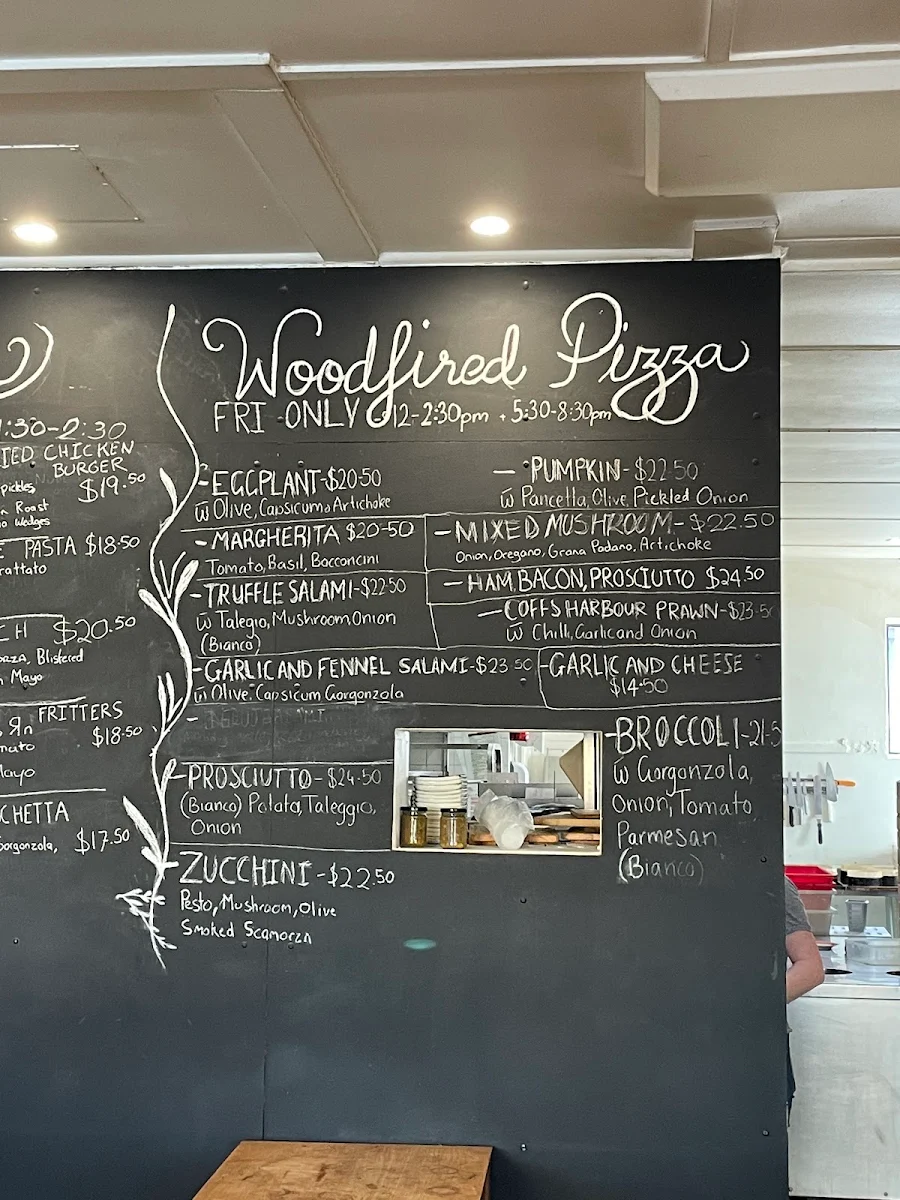 1:30-2:30
CHICKEN
BURGER
pickles,
$19.50
Roast
Wedges
PASTA $18.50
$20.50
Blistered
Mayo
FRITTERS
$18.50
Mayo
Gorgonzola,
$17.50
Woodfired Pizza
FRI ONLY 12-2:30pm + 5:30-8:30pm
- EGGPLANT - $20.50
w Olive, Capsicum, Artichoke
- MARGHERITA $20-50
Tomato, Basil, Bocconcini
- TRUFFLE SALAMI - $22.50
w Talegio, Mushroom Onion
(Bianco)
- GARLIC AND FENNEL SALAMI - $23.50
w Olive, Capsicum Gorgonzola
- PROSCIUTTO - $24.50
(Bianco) Potato, Taleggio,
Onion
- ZUCCHINI - $22.50
Pesto, Mushroom, Olive
Smoked Scamorza
- PUMPKIN - $22.50
w Pancetta, Olive, Pickled Onion
- MIXED MUSHROOM - $22.50
Onion, Oregano, Grana Padano, Artichoke
- HAM, BACON, PROSCIUTTO $24.50
- COFFS HARBOUR PRAWN - $23.50
w Chilli, Garlic and Onion
- GARLIC AND CHEESE
$14.50
- BROCCOLI - 21.5
w Gorgonzola,
Onion, Tomato
Parmesan
(Bianco)